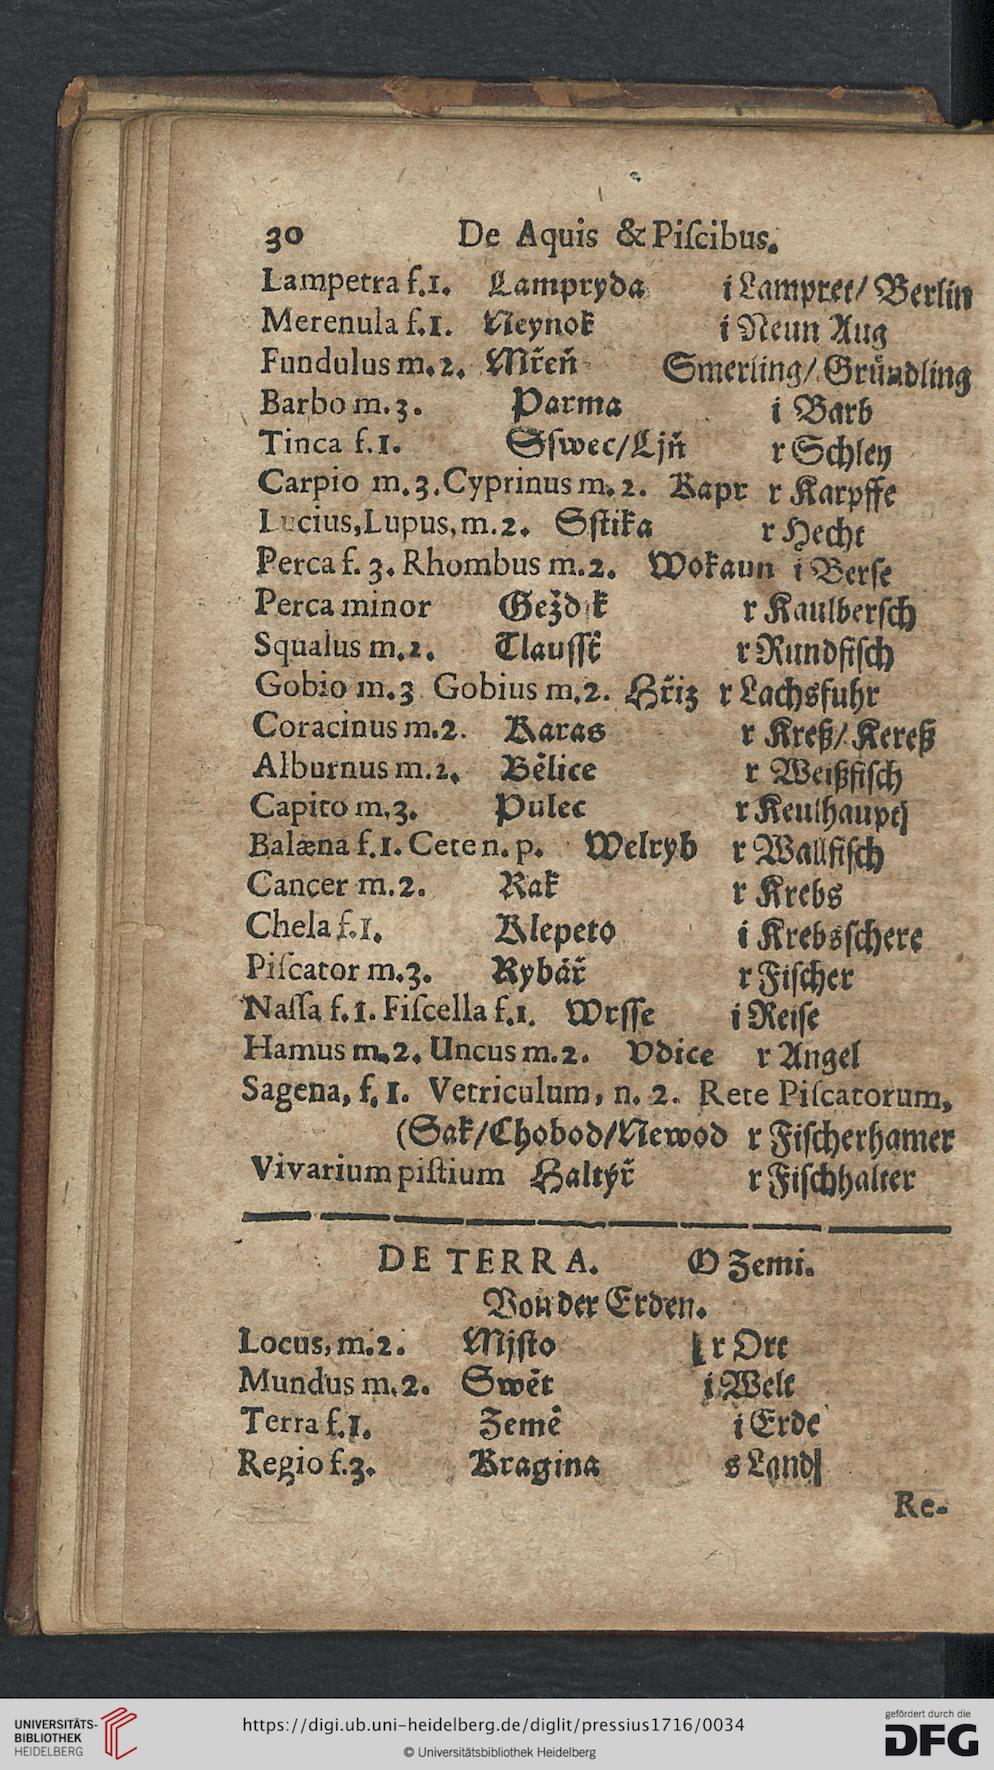 30 De Aquis & Piſcibus.
Lampetra f.1. Lampryda i Lampret/ Berlin
Merenula f.1. Neynok i Neun Aug
Fundulus m.2. Mřeň Smerling/ Gründling
Barbo m.3. Parma i Barb
Tinca f.1. Sſwec/Ljň r Schley
Carpio m.3. Cyprinus m.2. Kapr r Karpffe
Lucius, Lupus, m.2. Sſtika r Hecht
Perca f.3. Rhombus m.2. Wokaun i Berſe
Perca minor Gežd k r Kaulberſch
Squalus m.2. Tlauſſť r Rundfiſch
Gobio m.3 Gobius m.2. Hřiz r Lachsfuhr
Coracinus m.2. Karas r Kreß/ Kereß
Alburnus m.2. Bělice r Weißfiſch
Capito m.3. Pulec r Keulhaupt
Balæna f.1. Cete n. p. Welryb r Wallfiſch
Cancer m.2. Rak r Krebs
Chela f.1. Klepeto i Krebsſchere
Piſcator m.3. Rybář r Fiſcher
Naſſa f.1. Fiſcella f.1. Wrſſe i Reiſe
Hamus m.2. Uncus m.2. Vdice r Angel
Sagena, f.1. Vetriculum, n. 2. Rete Piſcatorum,
(Sak/Chobod/Newod r Fiſcherhamer
Vivarium piſtium Haltýř r Fiſchhalter
DE TERRA. O Zemi.
Von der Erden.
Locus, m.2. Mjſto r Ort
Mundus m.2. Swět i Welt
Terra f.1. Země i Erde
Regio f.3. Kragina s Land
Re-
UNIVERSITÄTS-
BIBLIOTHEK
HEIDELBERG
https://digi.ub.uni-heidelberg.de/diglit/pressius1716/0034
© Universitätsbibliothek Heidelberg
gefördert durch die
DFG